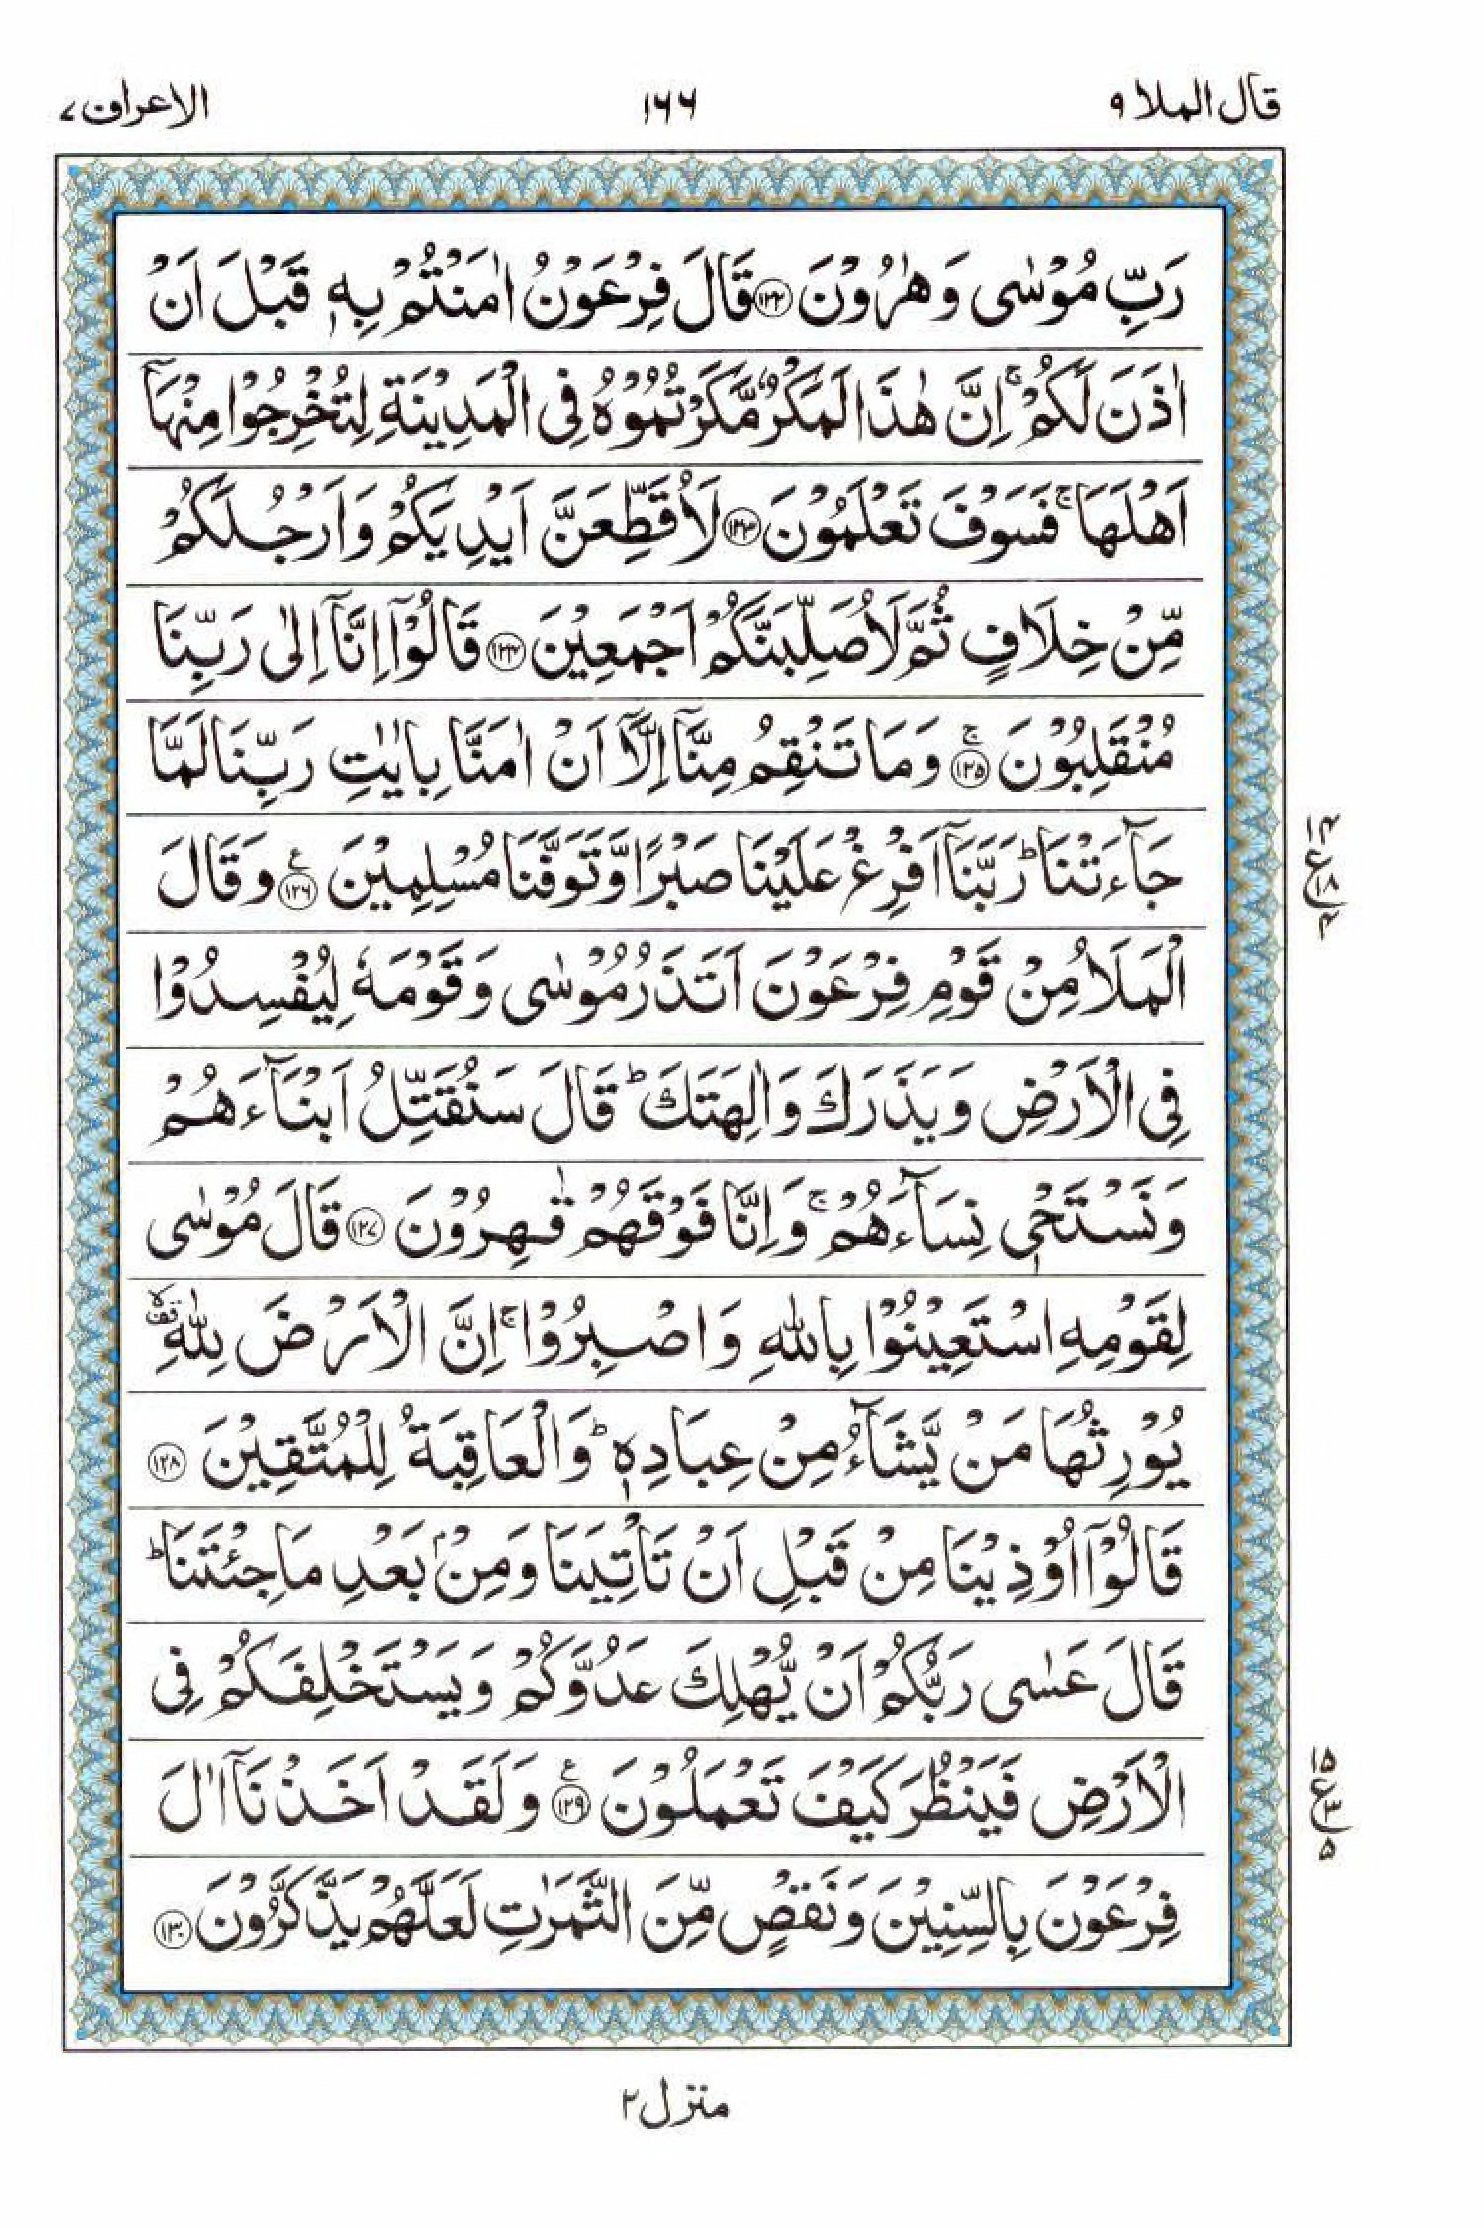 قال الملا ٩ ١٦٦ الاعراف ٧
رَبِّ مُوْسٰى وَهٰرُوْنَ ﴿۱۲۲﴾ قَالَ فِرْعَوْنُ اٰمَنْتُمْ بِهٖ قَبْلَ اَنْ
اٰذَنَ لَكُمْ ۚ اِنَّ هٰذَا لَمَكْرٌ مَّكَرْتُمُوْهُ فِى الْمَدِيْنَةِ لِتُخْرِجُوْا مِنْهَاۤ
اَهْلَهَا ۚ فَسَوْفَ تَعْلَمُوْنَ ﴿۱۲۳﴾ لَاُقَطِّعَنَّ اَيْدِيَكُمْ وَاَرْجُلَكُمْ
مِّنْ خِلَافٍ ثُمَّ لَاُصَلِّبَنَّكُمْ اَجْمَعِيْنَ ﴿۱۲۴﴾ قَالُوْۤا اِنَّاۤ اِلٰى رَبِّنَا
مُنْقَلِبُوْنَ ۚ ﴿۱۲۵﴾ وَمَا تَنْقِمُ مِنَّاۤ اِلَّاۤ اَنْ اٰمَنَّا بِاٰيٰتِ رَبِّنَا لَمَّا
جَآءَتْنَا ؕ رَبَّنَاۤ اَفْرِغْ عَلَيْنَا صَبْرًا وَّتَوَفَّنَا مُسْلِمِيْنَ ﴿۱۲۶﴾ ع وَقَالَ
الْمَلَاُ مِنْ قَوْمِ فِرْعَوْنَ اَتَذَرُ مُوْسٰى وَقَوْمَهٗ لِيُفْسِدُوْا
فِى الْاَرْضِ وَيَذَرَكَ وَاٰلِهَتَكَ ؕ قَالَ سَنُقَتِّلُ اَبْنَآءَهُمْ
وَنَسْتَحْىٖ نِسَآءَهُمْ ۚ وَاِنَّا فَوْقَهُمْ قٰهِرُوْنَ ﴿۱۲۷﴾ قَالَ مُوْسٰى
لِقَوْمِهِ اسْتَعِيْنُوْا بِاللّٰهِ وَاصْبِرُوْا ۚ اِنَّ الْاَرْضَ لِلّٰهِ
يُوْرِثُهَا مَنْ يَّشَآءُ مِنْ عِبَادِهٖ ؕ وَالْعَاقِبَةُ لِلْمُتَّقِيْنَ ﴿۱۲۸﴾
قَالُوْۤا اُوْذِيْنَا مِنْ قَبْلِ اَنْ تَاْتِيَنَا وَمِنْۢ بَعْدِ مَا جِئْتَنَا ؕ
قَالَ عَسٰى رَبُّكُمْ اَنْ يُّهْلِكَ عَدُوَّكُمْ وَيَسْتَخْلِفَكُمْ فِى
الْاَرْضِ فَيَنْظُرَ كَيْفَ تَعْمَلُوْنَ ﴿۱۲۹﴾ ع وَلَقَدْ اَخَذْنَاۤ اٰلَ
فِرْعَوْنَ بِالسِّنِيْنَ وَنَقْصٍ مِّنَ الثَّمَرٰتِ لَعَلَّهُمْ يَذَّكَّرُوْنَ ﴿۱۳۰﴾
۱۴
ع ۱۸
۴
۱۵
ع ۳
۵
منزل ۲